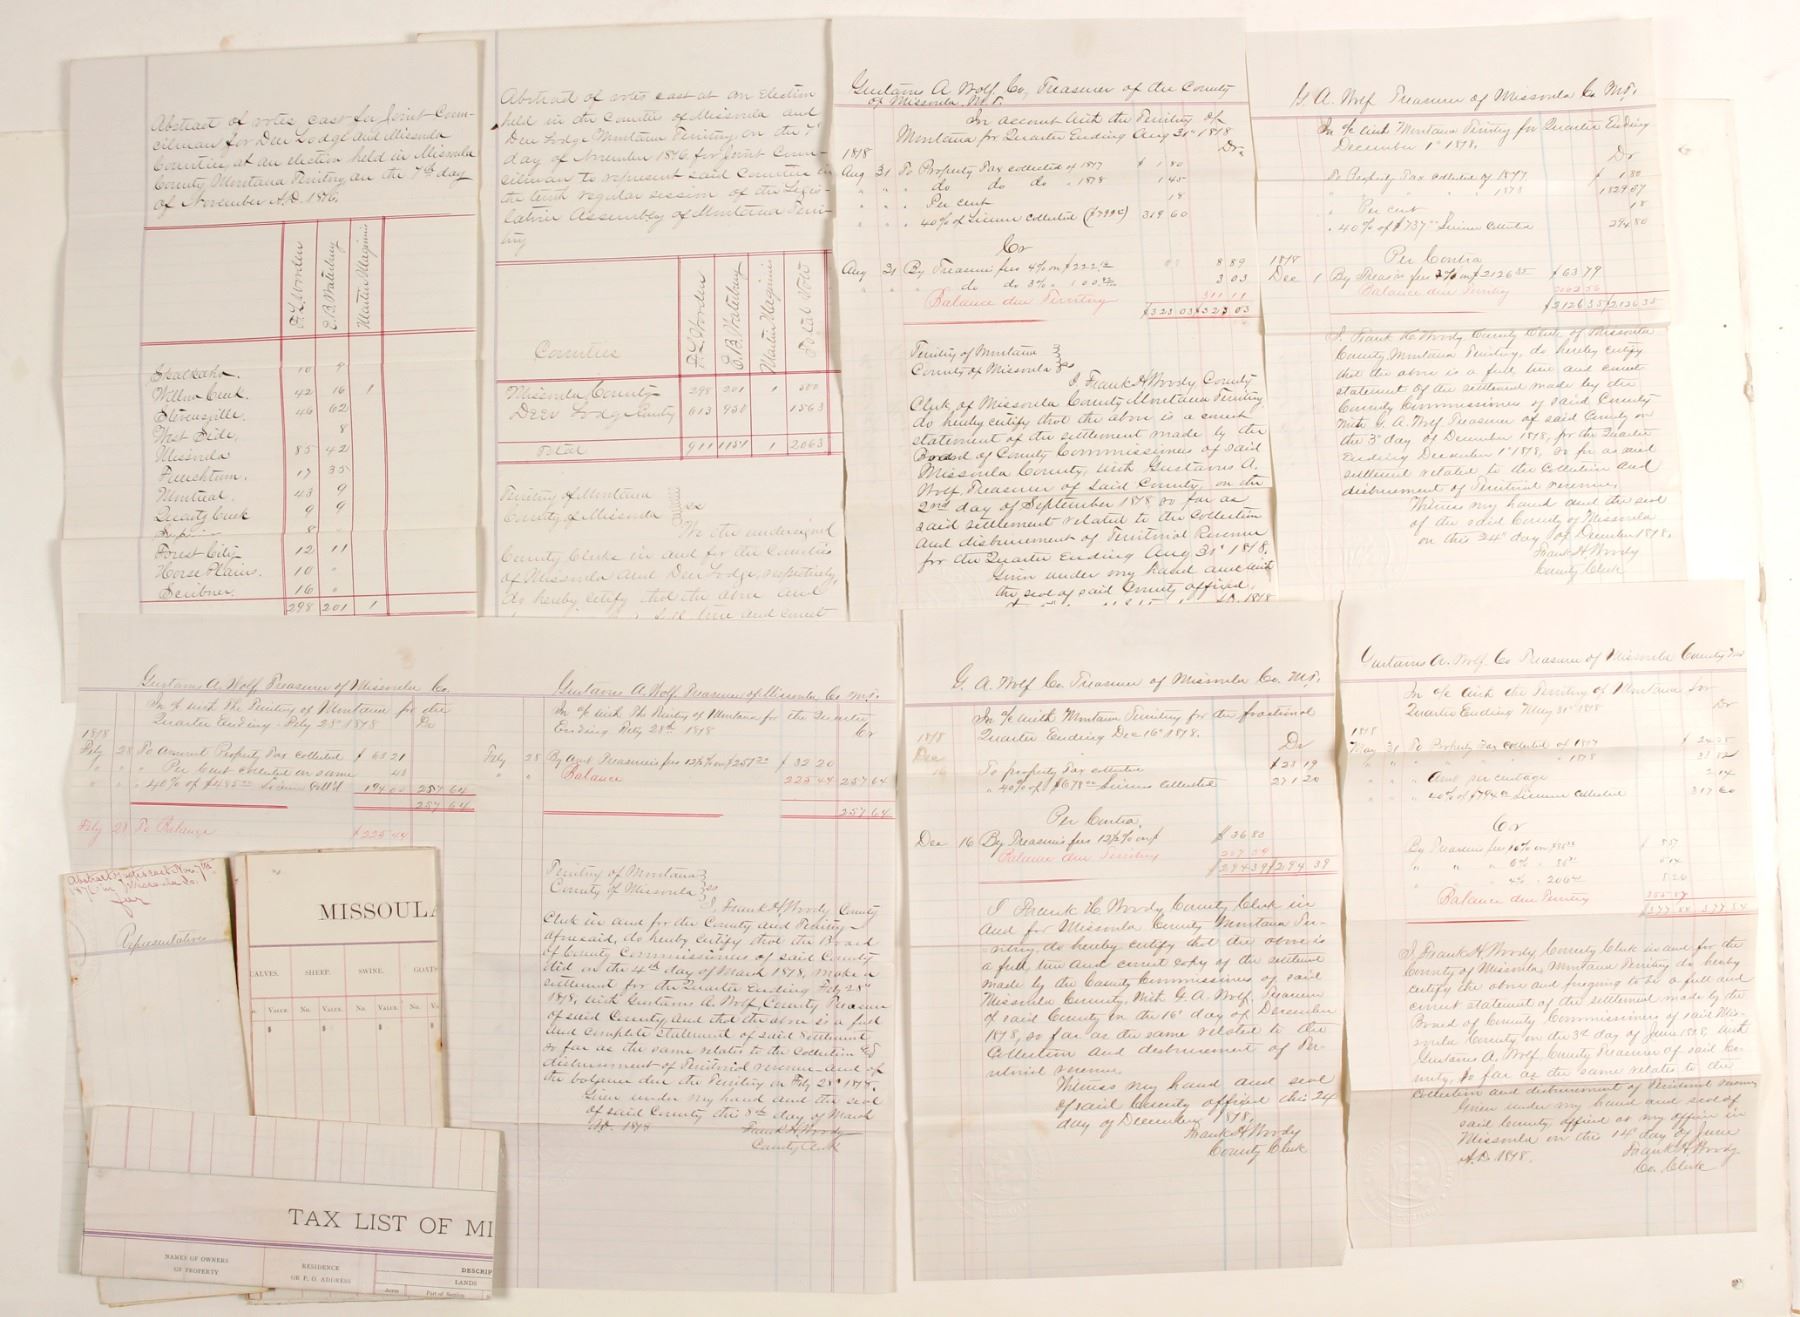 Abstract of votes cast for Joint Coun-
cilman for Deer Lodge and Missoula
Counties at an election held in Missoula
County, Montana Territory on the 7th day
of November A.D. 1876.
F. L. Worden
E. B. Waterbury
Martin Maginnis
Skalkaho. 10 9
Willow Creek. 42 16 1
Stevensville. 46 62
West Side. 8
Missoula 85 42
Frenchtown. 17 35
Montreal. 43 9
Quartz Creek 9 9
Superior 8 "
Forest City 12 11
Horse Plains. 10 "
Scribner. 16 "
298 201 1
Abstract of votes cast at an Election
held in the Counties of Missoula and
Deer Lodge Montana Territory, on the 7th
day of November 1876, for Joint Coun-
cilman to represent said Counties in
the tenth regular session of the Legis-
lative Assembly of Montana Terri-
tory
Counties
F. L. Worden
E. B. Waterbury
Martin Maginnis
Total Vote
Missoula County 298 201 1 500
Deer Lodge County 613 950 1563
Total 911 1151 1 2063
Territory of Montana
County of Missoula ss
We the undersigned
County Clerks in and for the Counties
of Missoula and Deer Lodge, respectively,
do hereby certify that the above and
true and correct
Gustavus A Wolf, Co, Treasurer of the County
of Missoula M.T.
In account with the Territory of
Montana for Quarter Ending Aug 31st 1878
Dr.
1878
Aug 31 To Property Tax collected of 1877 $ 1.80
" " " do do do " 1878 1.45
" " " Per cent 18
" " " 40% of License collected ($799.00) 319 60
Cr
Aug 31 By Treasurers fees 4% on $222.12 8 89
" " do do 3% " 100.00 3 03
Balance due Territory 311 11
$323 03 $323 03
Territory of Montana
County of Missoula ss
I Frank H Woody County
Clerk, of Missoula County Montana Territory,
do hereby certify that the above is a correct
statement of the settlement made by the
Board of County Commissioners of said
Missoula County, with Gustavus A.
Wolf, Treasurer of said County, on the
2nd day of September 1878 so far as
said settlement related to the Collection
and disbursement of Territorial Revenue
for the Quarter Ending Aug 31st 1878.
Given under my hand and with
the seal of said County affixed,
A.D. 1878
G A. Wolf Treasurer of Missoula Co M.T.
In a/c with Montana Territory for Quarter Ending
December 1st 1878.
Dr
To Property Tax collected of 1877. $ 1.80
" " " " 1878 1829.57
" Per cent 18
" 40% of $737.00 License collected 294 80
Per Contra
1878
Dec 1 By Treas'rs fees 3% on $2126.35 $63.79
Balance due Territory 2062 56
$2126.35 $2126.35
I, Frank H. Woody, County Clerk of Missoula
County, Montana Territory, do hereby certify
that the above is a full true and correct
statement of the settlement made by the
County Commissioners of said County
with G. A. Wolf Treasurer of said County on
the 3rd day of December 1878, for the Quarter
Ending December 1st 1878, so far as said
settlement related to the Collection and
disbursement of Territorial revenue.
Witness my hand and the seal
of the said County of Missoula
on this 24th day of December 1878.
Frank H Woody
County Clerk.
Gustavus A. Wolf Treasurer of Missoula Co.
In a/c with The Territory of Montana for the
Quarter Ending Feby 28th 1878 Dr
1878
Feby 28 To Amount Property Tax collected $ 63 21
" " " Per Cent collected on same 43
" " " 40% of $485.00 License Coll'd 194 00 257 64
257 64
Feby 28 To Balance $225 44
Gustavus A. Wolf Treasurer of Missoula Co M.T.
In a/c with The Territory of Montana for the Quarter
Ending Feby 28th 1878 Cr
Feby 28 By Amt Treasurers fees 12½% on $257.64 $ 32 20
" " Balance 225 44 257 64
257 64
Territory of Montana
County of Missoula ss
I, Frank H, Woody County
Clerk in and for the County and Territory
aforesaid, do hereby certify that the Board
of County Commissioners of said County
did on the 4th day of March 1878, make a
settlement for the Quarter Ending Feby 28th
1878, with Gustavus A. Wolf, County Treasurer
of said County and that the above is a full
and complete statement of said settlement
so far as the same relates to the collection and
disbursement of Territorial revenue and of
the balance due the Territory on Feby 28th 1878.
Given under my hand and the seal
of said County this 8th day of March
A.D. 1878 Frank H. Woody
County Clerk
G. A. Wolf Co. Treasurer of Missoula Co. M.T.
In a/c with Montana Territory for the fractional
Quarter Ending Dec 16th 1878.
1878 Dr
Dec 16 To property Tax collected $23 19
" 40% of $678.00 License collected 271.20
Per Contra,
Dec 16 By Treasurers fees 12½% on $ $ 36 80
Balance due Territory 257 59
$294 39 $294.39
I Frank H. Woody County Clerk in
and for Missoula County Montana Ter-
ritory, do hereby certify that the above is
a full, true and correct copy of the settlement
made by the County Commissioners of said
Missoula County, with G. A. Wolf, Treasurer
of said County on the 16th day of December
1878, so far as the same related to the
Collection and disbursement of Ter-
ritorial revenue.
Witness my hand and seal
of said County affixed this 24
day of December, 1878,
Frank H Woody
County Clerk
Gustavus A. Wolf, Co Treasurer of Missoula County M.T.
In a/c with the Territory of Montana for
Quarter Ending May 31st 1878 Dr
1878
May 31 To Property Tax collected of 1877 $
" " " " " " 1878
" " " Amt per centage
" " " 40% of $794.00 License collected 317 60
Cr
By Treasurers fees 10% on
" " " 6% "
" " " 4% "
Balance due Territory
I, Frank H, Woody, County Clerk in and for the
County of Missoula Montana Territory do hereby
certify the above and foregoing to be a full and
correct statement of the settlement made by the
Board of County Commissioners of said Mis-
soula County on the 3rd day of June 1878, with
Gustavus A. Wolf, County Treasurer of said Co-
unty, so far as the same relates to the
Collection and disbursement of Territorial revenue
Given under my hand and seal of
said County, affixed at my office in
Missoula on this 14th day of June
A.D. 1878. Frank H, Woody,
Co. Clerk
Abstract of votes cast Nov, 7th
1876, in Missoula Co.
for
Representatives
MISSOULA
CALVES. SHEEP. SWINE. GOATS
No. VALUE. No. VALUE. No. VALUE. No.
$ $ $ $
TAX LIST OF MI
NAMES OF OWNERS
OF PROPERTY
RESIDENCE
OR P. O. ADDRESS
DESCRIP
LANDS
Acres Part of Section